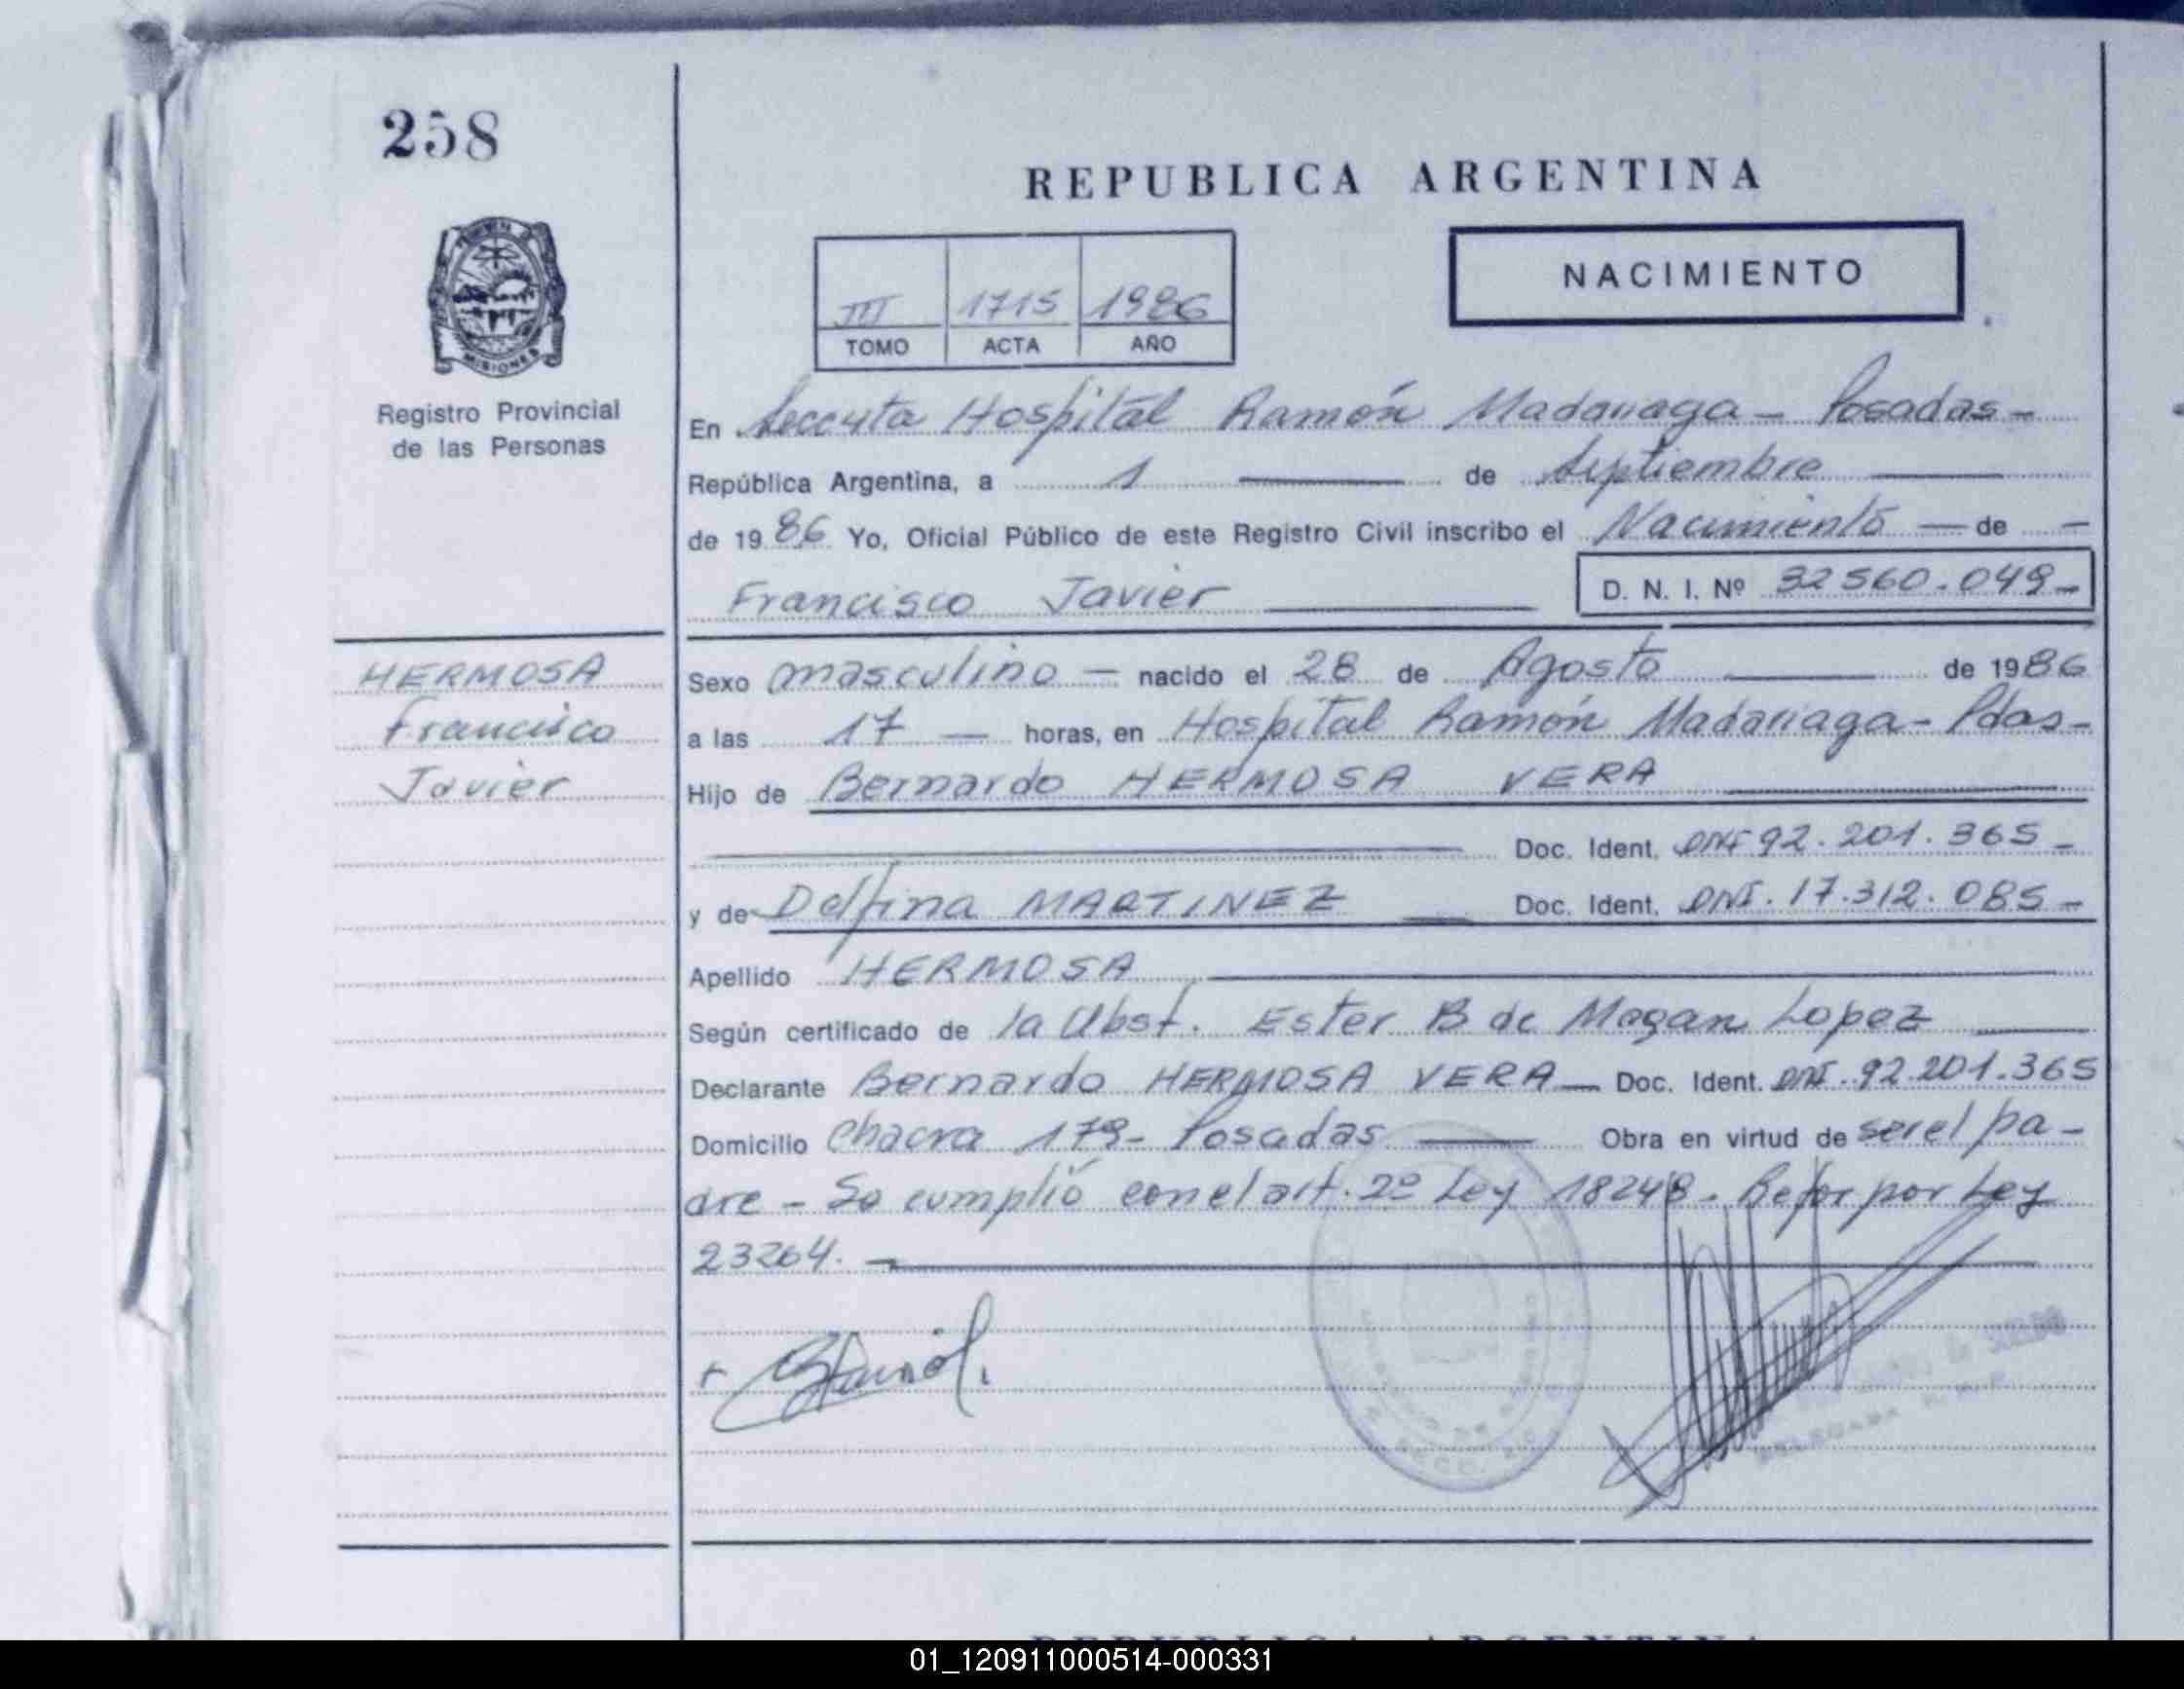 258
REPUBLICA ARGENTINA
MISIONES
Registro Provincial
de las Personas
III 1715 1986
TOMO ACTA AÑO
NACIMIENTO
En Hospital Ramón Madariaga - Posadas -
República Argentina, a 1 de Septiembre
de 1986 Yo, Oficial Público de este Registro Civil inscribo el Nacimiento — de —
Francisco Javier D. N. I. Nº 32560.049-
HERMOSA
Francisco
Javier
Sexo masculino — nacido el 28 de Agosto de 1986
a las 17 — horas, en Hospital Ramón Madariaga - Pdas -
Hijo de Bernardo HERMOSA VERA
Doc. Ident. DNI 92.201.365 -
y de Delfina MARTINEZ — Doc. Ident. DNI. 17.312.085 -
Apellido HERMOSA
Según certificado de la Obst. Ester B de Mogan Lopez
Declarante Bernardo HERMOSA VERA — Doc. Ident. DNI. 92.201.365
Domicilio Chacra 179 - Posadas — Obra en virtud de ser el pa-
dre - Se cumplió con el art. 2º Ley 18248. Refor por Ley
23264. —
REPUBLICA ARGENTINA
01_120911000514-000331